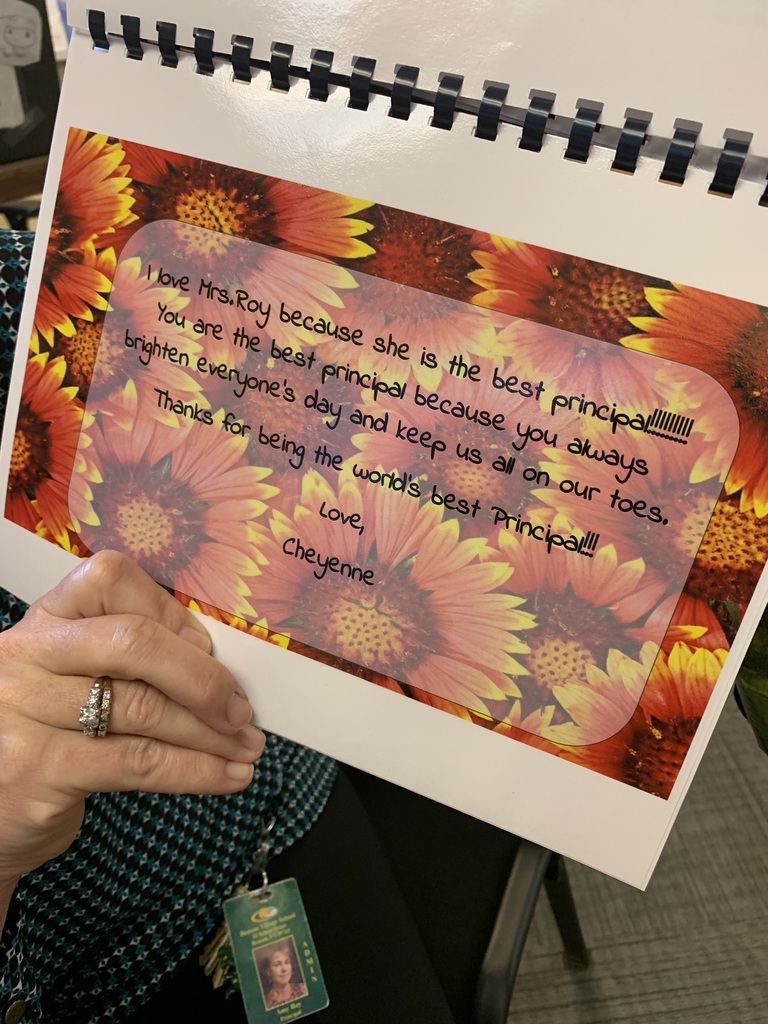 I love Mrs.Roy because she is the best principal!!!!!!!!!
You are the best principal because you always
brighten everyone's day and keep us all on our toes.
Thanks for being the world's best Principal!!!
Love,
Cheyenne
Benson Village School
ADMIN
Amy Roy
Principal